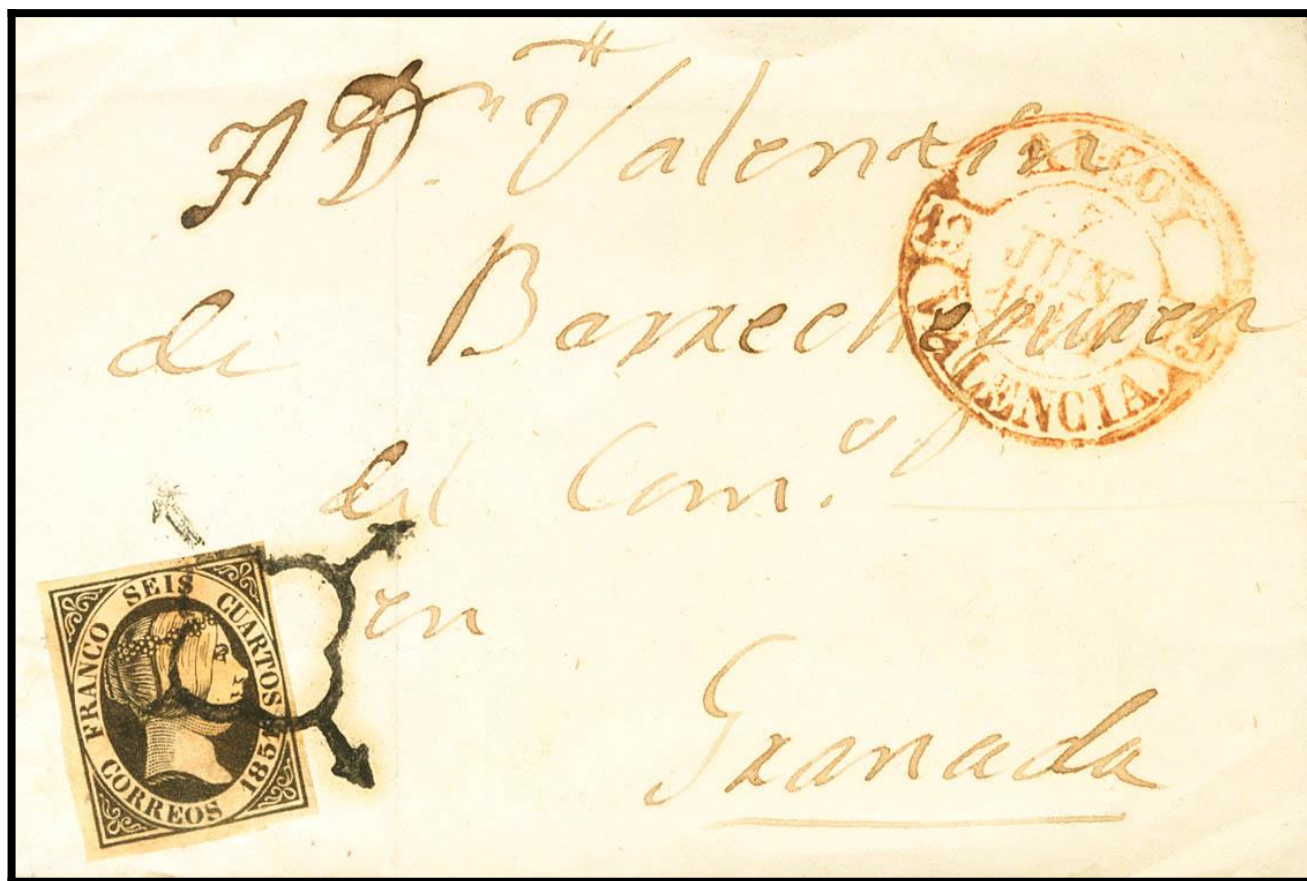 A Dn Valentin
de Barrecheguren
del Com.o
en
Granada
ALCOY
JUN
VALENCIA.
FRANCO SEIS CUARTOS
CORREOS 1851